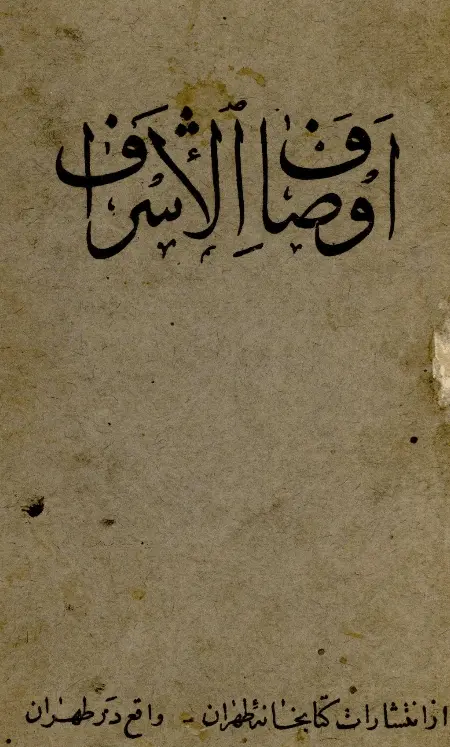 اوصاف الأشراف
از انتشارات کتابخانهٔ طهران - واقع در طهران